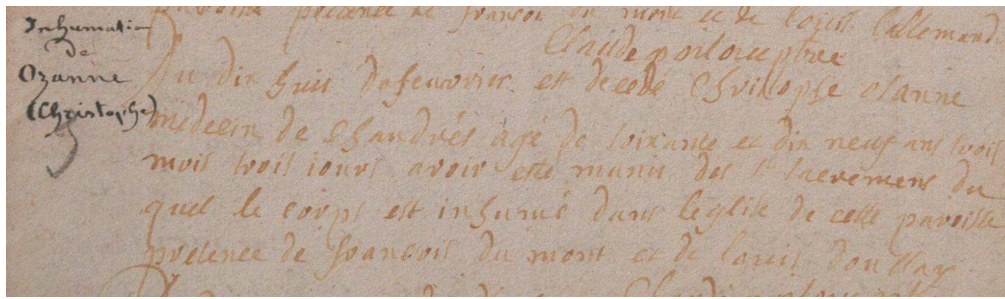 Inhumation
de
Ozanne
(Christophe)
presence de fransois du mont et de Louis lallemand
Claude poilouuptre
du dix huit de feuvrier est decedé Christophe osanne
medecin de Chaudrés agé de soixante et dix neuf ans trois
mois trois iours avoir esté munis des Sts sacremens du
quel le corps est inhumé dans leglise de cette paroisse
presence de fransois du mont et de Louis doullay